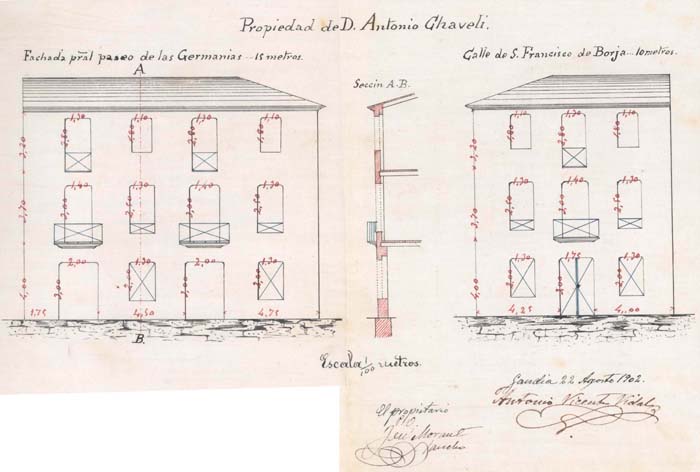 Propiedad de D. Antonio Chaveli.
Fachada pral paseo de las Germanias... 15 metros.
Calle de S. Francisco de Borja... 10 metros.
A
Seccin A. B.
1,30 1,10 1,30 1,10
3,20
1,40 1,30 1,40 1,30
3,70
2,00 1,30 2,00 1,30
4,00
1,75 4,50 4,75
B.
1,10 1,30 1,10
3,20
1,30 1,40 1,30
3,70
1,30 1,75 1,30
4,00
4,25 4,00
Escala 1/100 metros.
Gandia 22 Agosto 1902.
Antonio Vicente Vidal
El propietario
P.O.
José Morant